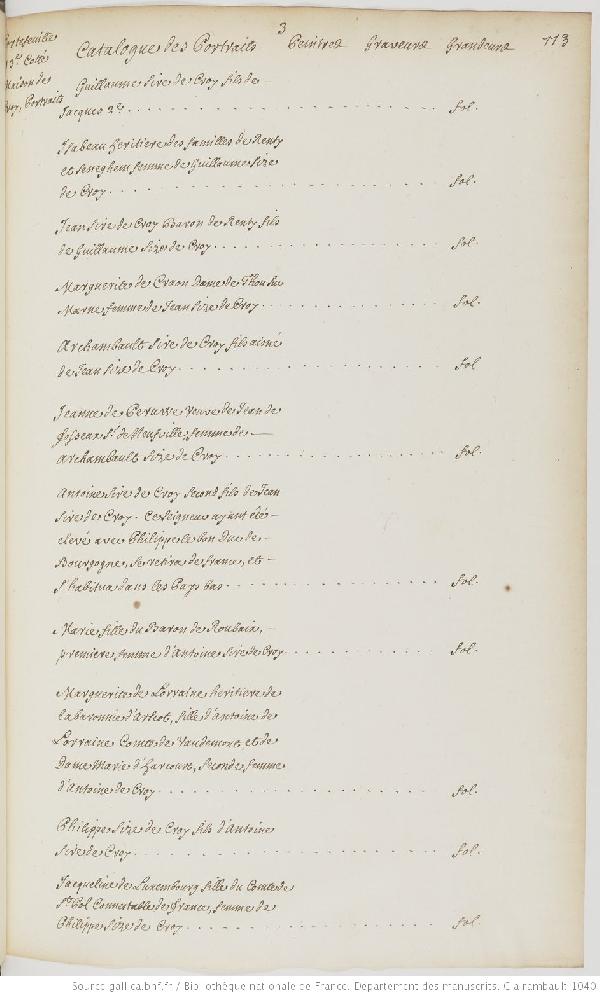 3
113
Portefeuille
13e. Cotté
Maison de
Croy, Portraits
Catalogue des Portraits Peintres Graveurs Grandeurs
Guillaume Sire de Croy fils de
Jacques 2e. fol.
Isabeau heritiere des familles de Renty
et Seneghem femme de Guillaume Sire
de Croy fol.
Jean Sire de Croy Baron de Renty fils
de Guillaume Sire de Croy fol.
Marguerite de Craon Dame de
Marne femme de Jean Sire de Croy fol.
Archambault Sire de Croy fils aisné
de Jean Sire de Croy fol
Jeanne de veuve de Jean de
Sr. de Neufville, femme de
Archambault Sire de Croy fol.
Antoine Sire de Croy second fils de Jean
Sire de Croy. Ce Seigneur ayant été
elevé avec Philippe le bon Duc de
Bourgogne, se retira de france, et
s'habitua dans les Pays bas fol.
Marie fille du Baron de Roubaix,
premiere femme d'Antoine Sire de Croy fol.
Marguerite de Lorraine heritiere de
la baronnie d'Arscot, fille d'antoine de
Lorraine Comte de Vaudemont et de
Dame Marie d'Harcourt, seconde femme
d'Antoine de Croy fol.
Philippe Sire de Croy fils d'Antoine
Sire de Croy fol.
Jacqueline de Luxembourg fille du Comte de
St. Pol Connetable de france, femme de
Philippe Sire de Croy fol.
Source gallica.bnf.fr / Bibliothèque nationale de France. Département des manuscrits. Clairambault 1040.